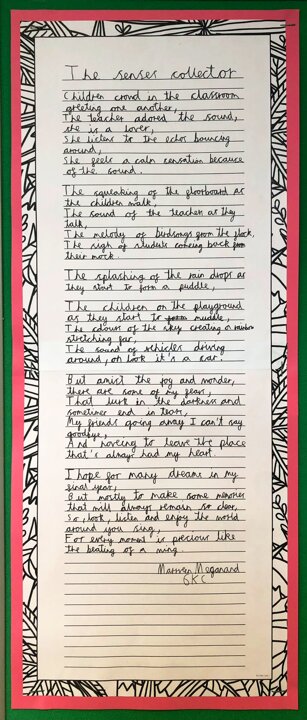 The senses collector
Children crowd in the classroom
greeting one another,
The teacher adored the sound,
she is a lover,
She listens to the echos bouncing
around,
She feels a calm sensation because
of the sound.
The squeaking of the floorboard as
the children walk,
The sound of the teacher as they
talk,
The melody of birdsongs from the flock,
The sigh of students coming back from
their mock.
The splashing of the rain drops as
they start to form a puddle,
The children on the playground
as they start to muddle,
The colours of the sky creating a rainbow
stretching far,
The sound of vehicles driving
around, oh look it's a car.
But amist the joy and wonder,
there are some of my fears,
That lurk in the darkness and
sometimes end in tears,
My friends going away I can't say
goodbye,
And having to leave the place
that's always had my heart.
I hope for many dreams in my
final year,
But mostly to make some memories
that will always remain so clear,
So, look, listen and enjoy the world
around you sing,
For every moment is precious like
the beating of a wing.
6KC